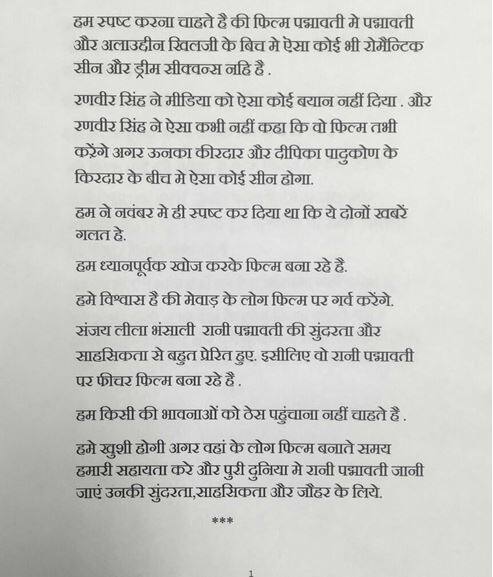 हम स्पष्ट करना चाहते है की फिल्म पद्मावती मे पद्मावती
और अलाउद्दीन खिलजी के बिच मे ऐसा कोई भी रोमैन्टिक
सीन और ड्रीम सीक्वन्स नहि है .
रणवीर सिंह ने मीडिया को ऐसा कोई बयान नहीं दिया . और
रणवीर सिंह ने ऐसा कभी नहीं कहा कि वो फिल्म तभी
करेंगे अगर ऊनका कीरदार और दीपिका पादुकोण के
किरदार के बीच मे ऐसा कोई सीन होगा.
हम ने नवंबर मे ही स्पष्ट कर दिया था कि ये दोनों खबरें
गलत हे.
हम ध्यानपूर्वक खोज करके फिल्म बना रहे है.
हमे विश्वास है की मेवाड़ के लोग फिल्म पर गर्व करेंगे.
संजय लीला भंसाली रानी पद्मावती की सुंदरता और
साहसिकता से बहुत प्रेरित हुए. इसीलिए वो रानी पद्मावती
पर फीचर फिल्म बना रहे है .
हम किसी की भावनाओं को ठेस पहुंचाना नहीं चाहते है .
हमे खुशी होगी अगर वहां के लोग फिल्म बनाते समय
हमारी सहायता करे और पुरी दुनिया मे रानी पद्मावती जानी
जाएं उनकी सुंदरता,साहसिकता और जौहर के लिये.
***
1